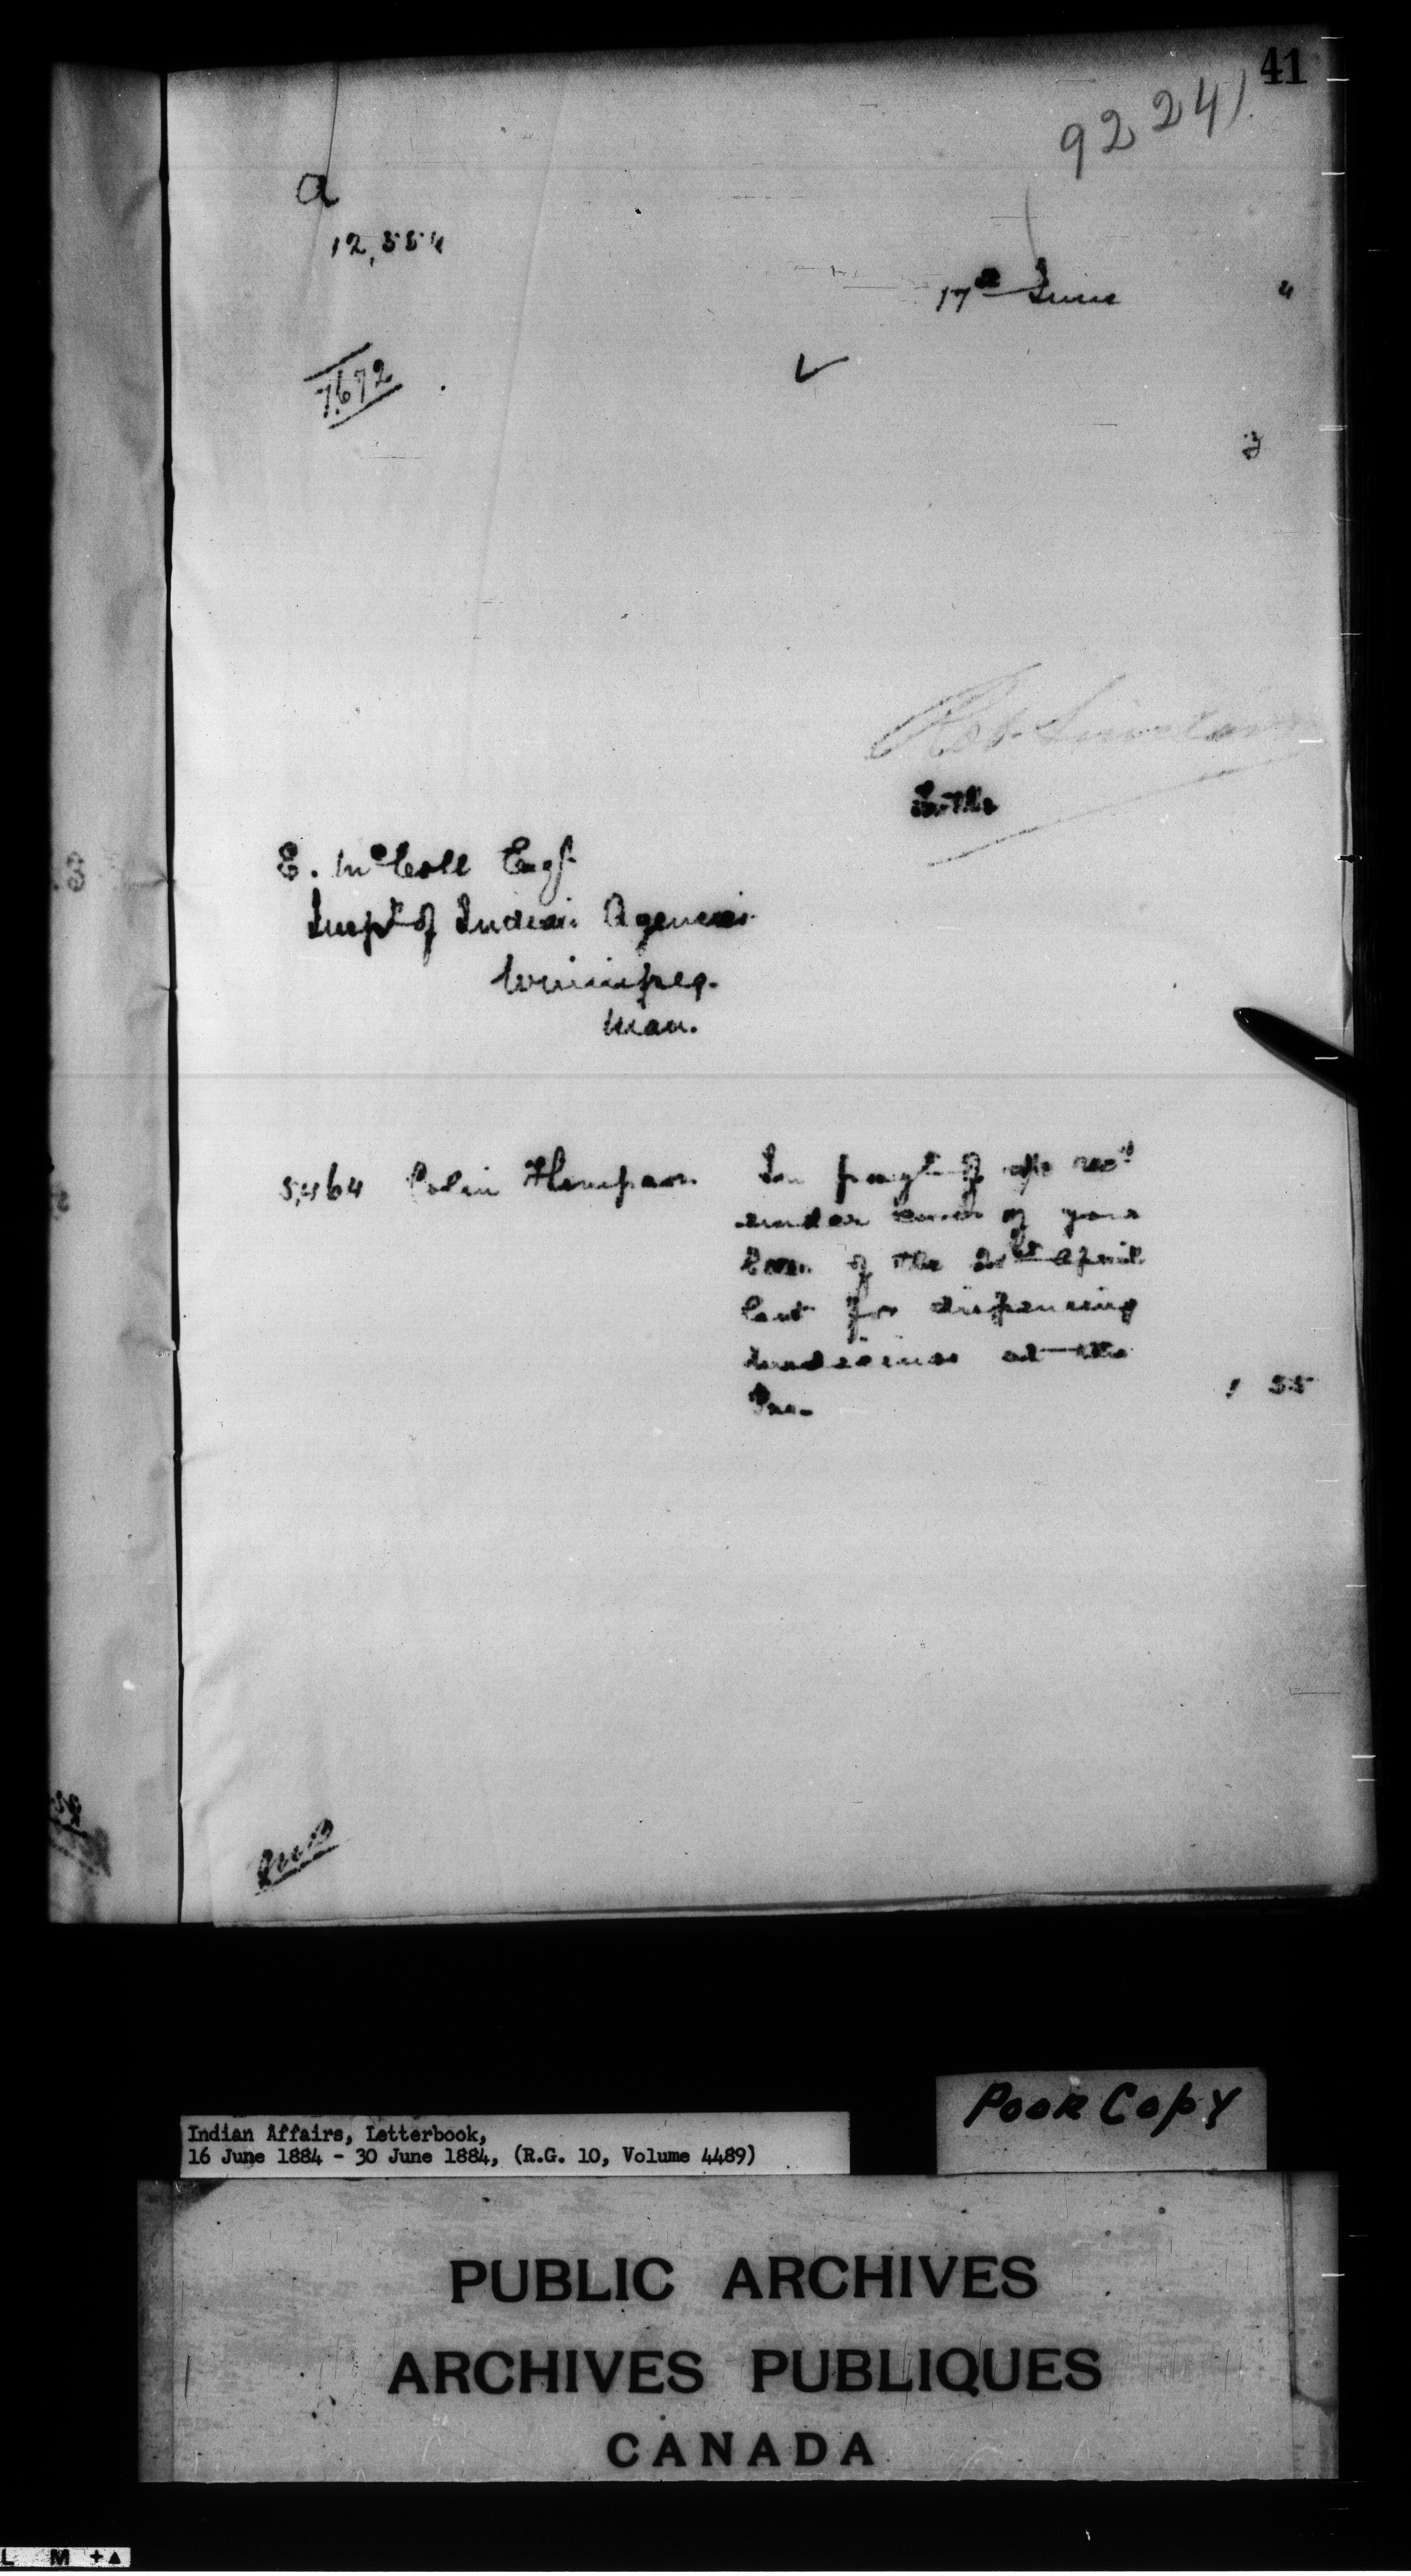 41
92241
a
12,554
17th June 4
7672
Rob Sinclair
for the
E. McColl Esqr
Inspr of Indian Agencies
Winnipeg.
Man.
5,464 Colin Thompson In paymt of a/c recd
under cover of your
of the 21st April
last for dispensing
medicines at the
Pas. 1 55
Poor Copy
Indian Affairs, Letterbook,
16 June 1884 - 30 June 1884, (R.G. 10, Volume 4489)
PUBLIC ARCHIVES
ARCHIVES PUBLIQUES
CANADA
L M +▲